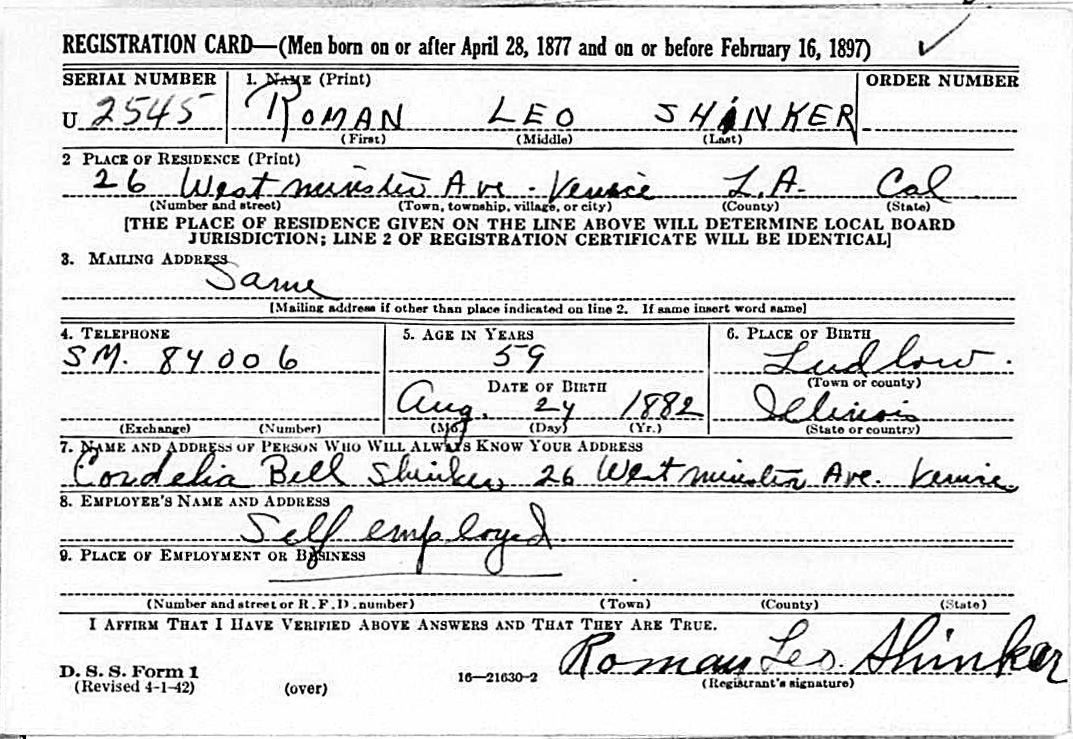 REGISTRATION CARD—(Men born on or after April 28, 1877 and on or before February 16, 1897)
SERIAL NUMBER 1. NAME (Print) ORDER NUMBER
U 2545 ROMAN LEO SHINKER
(First) (Middle) (Last)
2 PLACE OF RESIDENCE (Print)
26 Westminster Ave - Venice L.A. Cal
(Number and street) (Town, township, village, or city) (County) (State)
[THE PLACE OF RESIDENCE GIVEN ON THE LINE ABOVE WILL DETERMINE LOCAL BOARD
JURISDICTION; LINE 2 OF REGISTRATION CERTIFICATE WILL BE IDENTICAL]
3. MAILING ADDRESS
Same
[Mailing address if other than place indicated on line 2. If same insert word same]
4. TELEPHONE 5. AGE IN YEARS 6. PLACE OF BIRTH
SM. 84006 59 Ludlow.
(Town or county)
DATE OF BIRTH
Aug. 24 1882 Illinois
(Exchange) (Number) (Mo.) (Day) (Yr.) (State or country)
7. NAME AND ADDRESS OF PERSON WHO WILL ALWAYS KNOW YOUR ADDRESS
Cordelia Bell Shinker 26 Westminster Ave. Venice.
8. EMPLOYER'S NAME AND ADDRESS
Self employed
9. PLACE OF EMPLOYMENT OR BUSINESS
(Number and street or R. F. D. number) (Town) (County) (State)
I AFFIRM THAT I HAVE VERIFIED ABOVE ANSWERS AND THAT THEY ARE TRUE.
Roman Leo. Shinker
D. S. S. Form 1
(Revised 4-1-42) (over) 16—21630-2 (Registrant's signature)